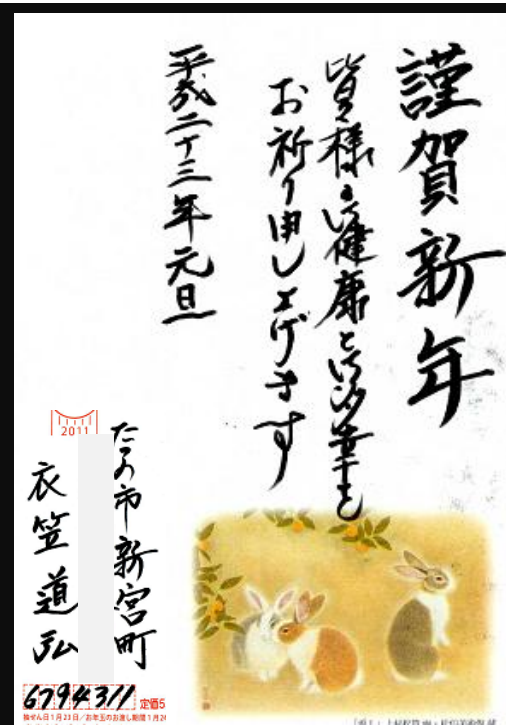 謹賀新年
皆々様のご健康とご多幸を
お祈り申し上げます
平成二十三年元旦
2011
たつの市新宮町
衣笠道弘
6794311
定価5
抽せん日1月23日/お年玉のお渡し期間1月2